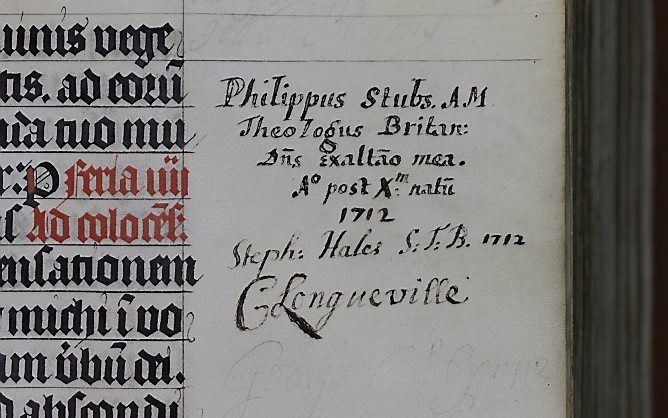 uinis vege
tis. ad corū
uda tuo mu
Feria iiij
Ad coloceñ.
ensationem
michi ī vo
am v̄bū dei.
d abscondi
Philippus Stubs. A.M
Theologus Britan:
Dn̄s Exaltāo mea.
Aº post X:ᵐ natū
1712
Steph: Hales S.T.B. 1712
C Longueville